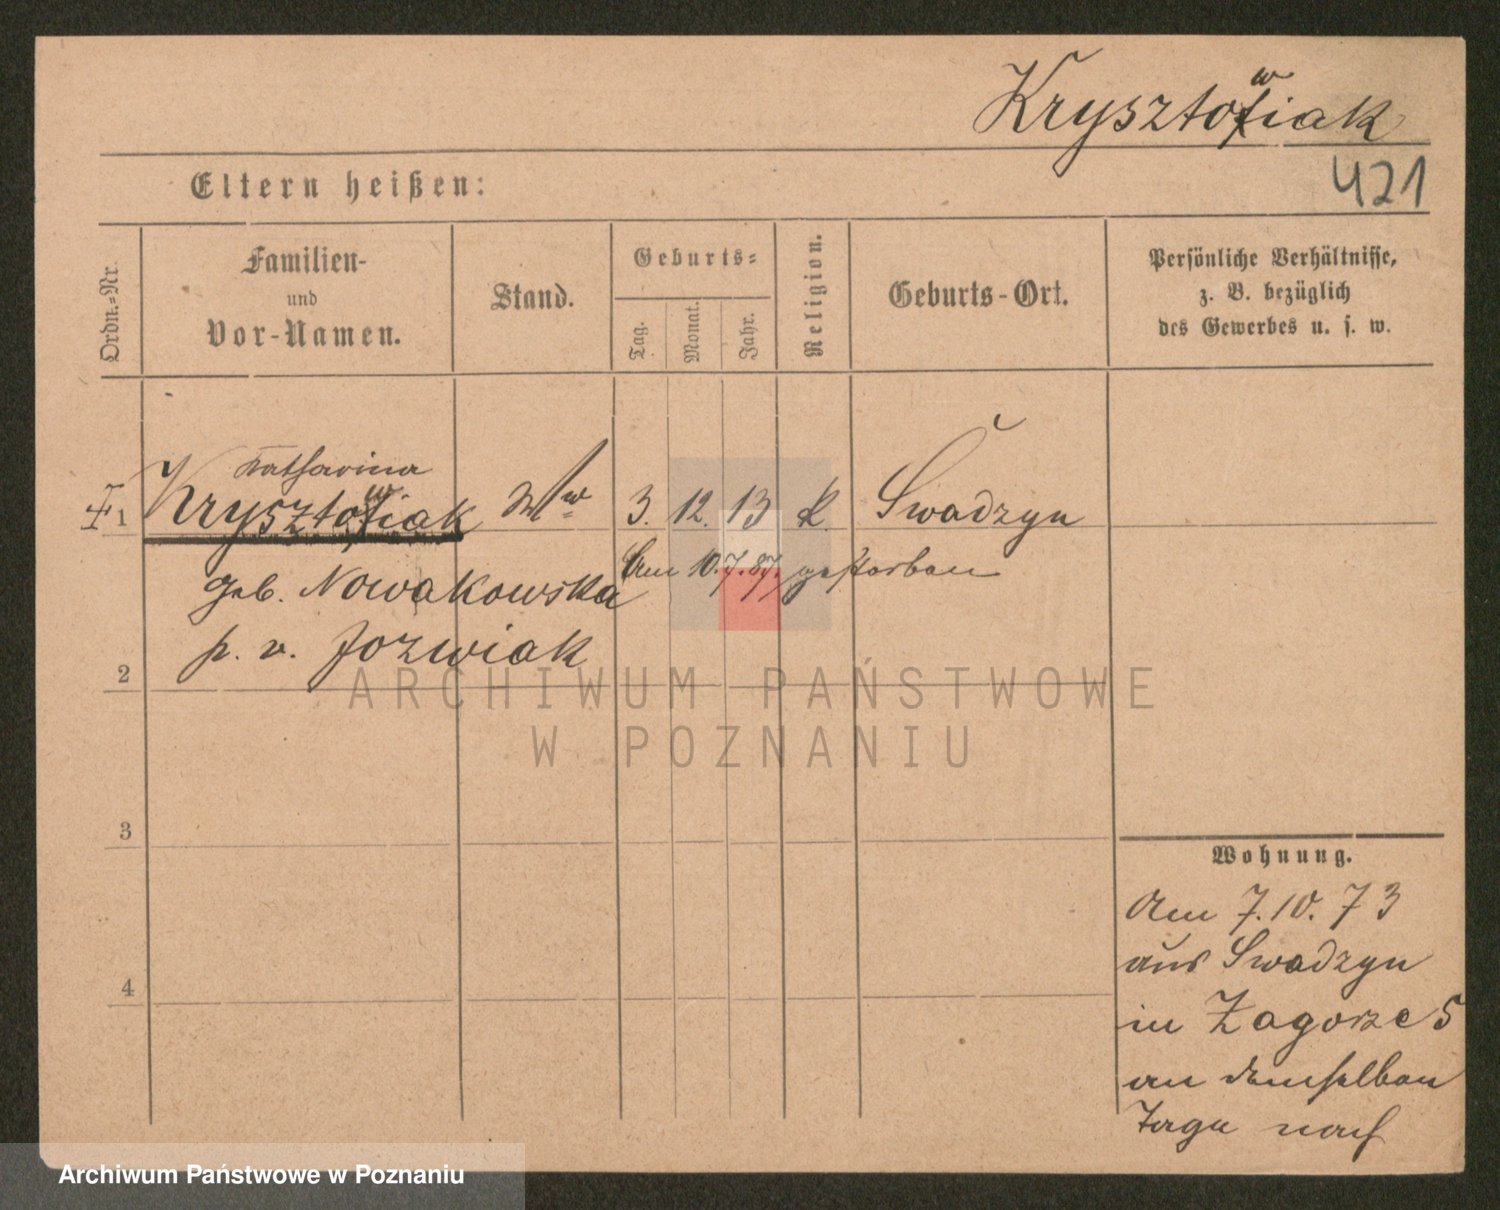 Krysztofiak
w
421
Eltern heißen:
Ordn.-Nr.
Familien-
und
Vor-Namen.
Stand.
Geburts-
Tag.
Monat.
Jahr.
Religion.
Geburts-Ort.
Persönliche Verhältnisse,
z. B. bezüglich
des Gewerbes u. s. w.
Katharina
1 Krysztofiak 3. 12. 13 k. Swadzyn
w
geb. Nowakowska Am 10.7.87. gestorben
p. v. Jozwiak
2
3
4
Wohnung.
Am 7.10.73
aus Swadzyn
in Zagorze 5
an demselben
Tage nach
ARCHIWUM PAŃSTWOWE
W POZNANIU
Archiwum Państwowe w Poznaniu